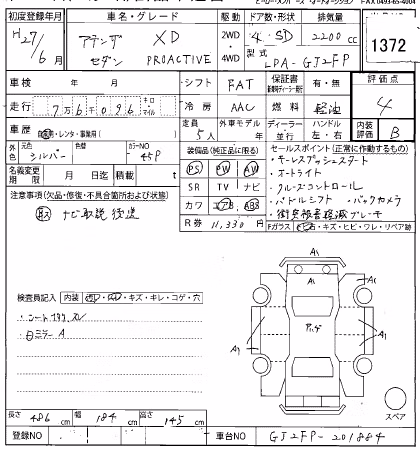 初度登録年月 車名・グレード 駆動 ドア数・形状 排気量
H27/6月 アテンザ セダン XD PROACTIVE 2WD 4WD 4 SD 2200cc
型式 LDA-GJ2FP
1372
車検 年 月 シフト FAT 保証書 有・無 評価点
走行 7万6096 キロ マイル 冷房 AAC 燃料 軽油 4
車歴 自家・レンタ・事業用( ) 定員 5人 外車モデル 年 ディーラー・並行 ハンドル 左・右 内装評価 B
外色 元色 シルバー 色替 カラーNO 45P
装備品(純正品に限る) セールスポイント(正常に動作するもの)
名義変更期限 月 日迄 積載 t
PS PW AW
・キーレスプッシュスタート
・オートライト
注意事項(欠品・修復・不具合箇所および状態)
SR TV ナビ
・クルーズコントロール
カワ エアB ABS
・パドルシフト ・バックカメラ
ナビ取説後送
・衝突被害軽減ブレーキ
R券 11,330円
Fガラス 石・キズ・ヒビ・ワレ・リペア跡
検査員記入 内装 ・キズ・キレ・コゲ・穴
・シート
ミラーA
A1
A1
A1
A1
A1
アンテナ
スペア
長さ 486cm 幅 184cm 高さ 145cm
登録NO 車台NO GJ2FP-201884